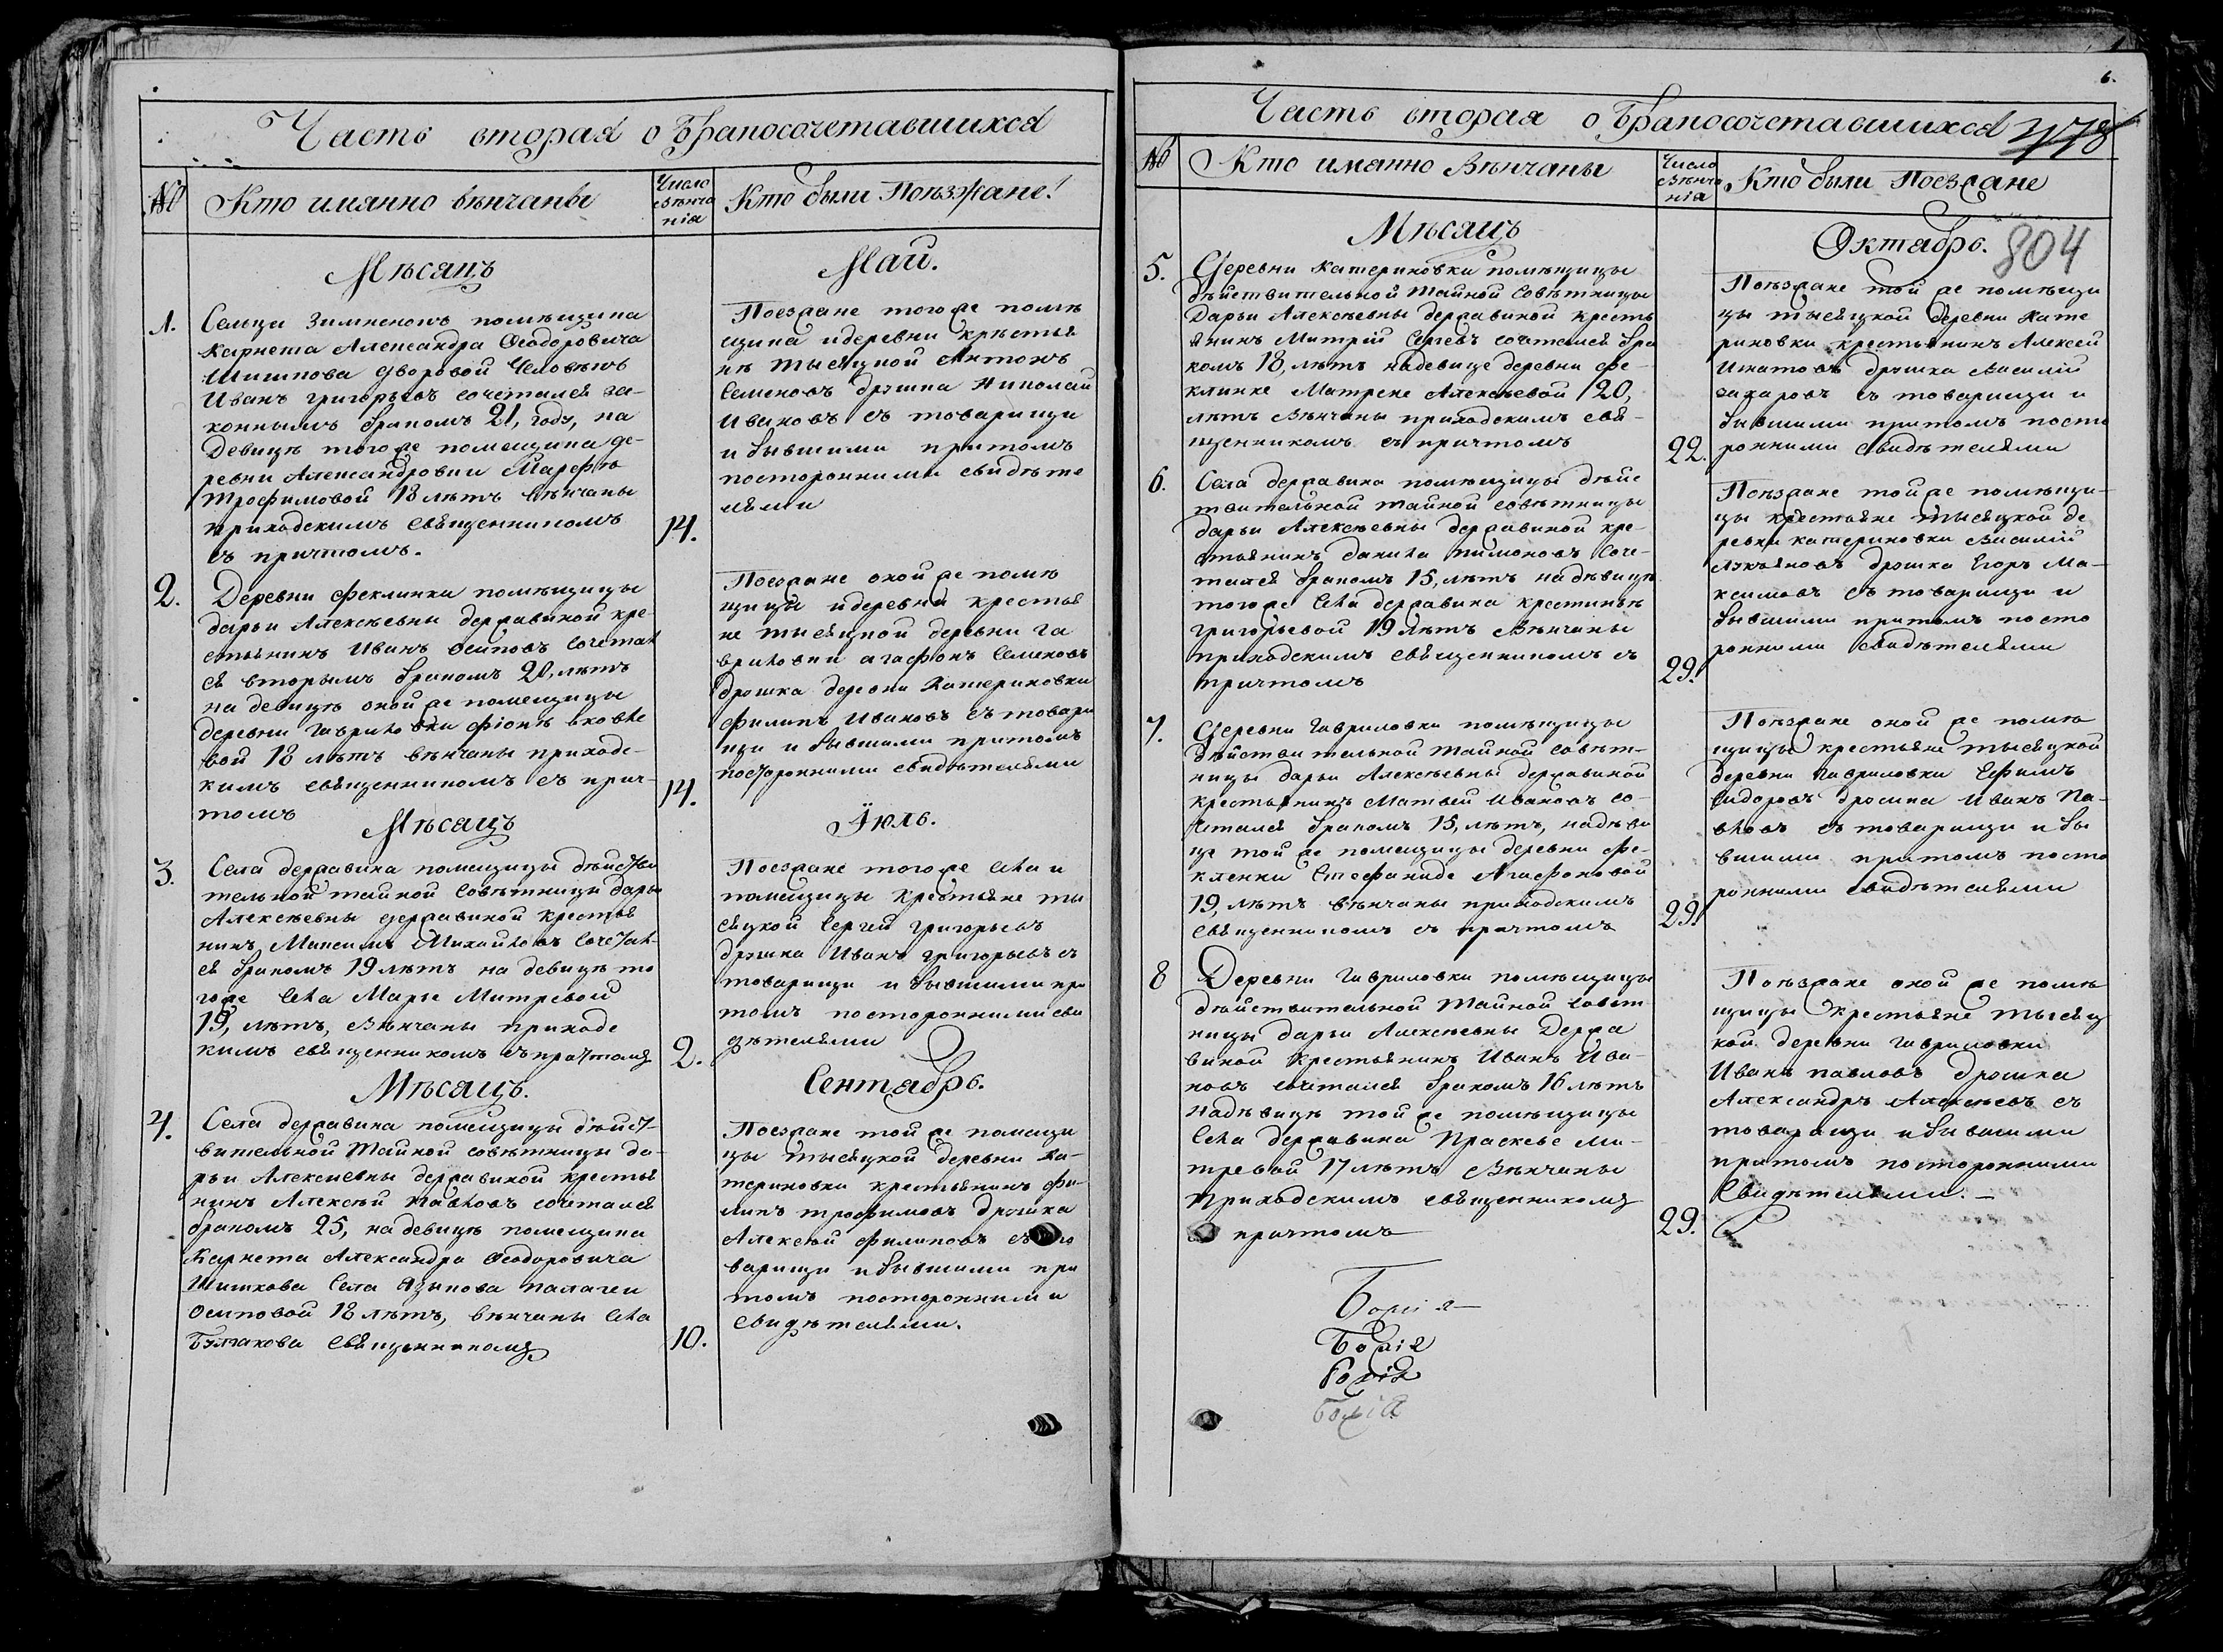 Часть вторая о бракосочетавшихся
№
Кто имянно вѣнчаны
Число вѣнча нія
Кто были Поѣзжане!
Мѣсяцъ
Май.
1.
Сельца Зимненокъ помѣщика
Карнета Александра Феодоровича
Шишкова дворовой Человѣкъ
Иванъ григорьевъ сочетался за-
коннымъ бракомъ 21, году, на
девицѣ тогоже помещика де-
ревни Александровки Марфѣ
трофимовой 18 лѣтъ вѣнчаны
приходскимъ священникомъ
съ причтомъ.
14.
Поезжане тогоже помѣ
щика идеревни крѣстья
нѣ тысяцкой Антонъ
Семеновъ дрỹшка Николай
Ивановъ съ товарищи
и бывшими притомъ
посторонними свидѣте
лями
2.
Деревни феклинки помѣщицы
дарьи Алексѣевны державиной кре-
стьянинъ Иванъ осиповъ сочетал
ся вторымъ бракомъ 20, лѣтъ
на девицѣ оной же помещицы
деревни гаврило вки фіонѣ яковле
вой 18 лѣтъ вѣнчаны приходс-
кимъ священникомъ съ прич-
томъ
14.
Поезжане оной же помѣ
щицы идеревни крестья
не тысяцкой деревни га
вриловки агафонъ Семеновъ
дрỹшка деревни Катериновки
филипъ Ивановъ съ товари
щи и бывшими притомъ
посторонними свидѣтелями
Мѣсяцъ
Іюль.
3.
Села державина помещицы дѣистви
тельной тайной Совѣтницы дарьи
Алексѣевны державиной крестья
нинъ Максимъ Михайловъ сочетал-
ся бракомъ 19 лѣтъ на девицѣ то
гоже села Марье Митревой
19, лѣтъ, вѣнчаны приходс
кимъ священникомъ съ причтомъ
2.
Поезжане тогоже села и
помещицы крестьяне ты
сяцкой Сергей григорьевъ
дрỹшка Иванъ григорьевъ съ
товарищи и бывшими при
томъ посторонними сви
дѣтелями
Мѣсяцъ.
Сентябрь.
4.
Села державина помещицы дѣист-
вительной тайной совѣтницы да-
рьи Алексѣевны державиной крестья
нинъ Алексѣй павловъ сочетался
бракомъ 25, на девицѣ помещика
Карнета Александра Феодоровича
Шишкова Села Языкова палагеи
осиповой 18 лѣтъ, вѣнчаны села
священникомъ
10.
Поезжане той же помещи
цы тысяцкой деревни ка-
териновки крестьянинъ фи-
липъ трофимовъ дрỹшка
Алексѣй филиповъ съ то
варищи и бывшими при
томъ посторонними
свидѣтелями.
6.
Часть вторая о бракосочетавшихся
378
№
Кто имянно Вѣнчаны
Число вѣнча нія
Кто были Поезжане
Мѣсяцъ
Октябрь.
804
5.
Деревни катериновки помѣщицы
дѣйствительной тайной Совѣтницы
Дарьи Алексѣевны державиной кресть
янинъ Митрій Сергевъ сочетался бра
комъ 18, лѣтъ надевице деревни фе-
клинке Матрене Алексѣевой 20,
лѣтъ Вѣнчаны приходскимъ свя-
щенникомъ съ причтомъ
22.
Поѣзжане той же помѣщи
цы тысяцкой деревни кате
риновки крестьянинъ Алексей
Игнатовъ дрỹшка Василій
захаровъ съ товарищи и
бывшими притомъ посто
ронними свидѣтелями
6.
Села державина помѣщицы дѣйс
твительной тайной совѣтницы
дарьи Алексѣевны державиной кре-
стьянинъ данила пимоновъ соче-
тался бракомъ 15, лѣтъ надѣвицѣ
тогоже села державина крестиньѣ
григорьевой 19 лѣтъ вѣнчаны
приходскимъ священникомъ съ
причтомъ
29.
Поѣзжане тойже помѣщи-
цы крестьяне тысяцкой де
ревни катериновки Василий
лукьяновъ дрỹшка Егоръ Ма-
ксимовъ съ товарищи и
бывшими притомъ посто
ронними свидѣтелями
7.
Деревни гавриловки помѣщицы
дѣйстви тельной тайной совѣт-
ницы дарьи Алексѣевны державиной
крестьянинъ Матвей Ивановъ со-
четался бракомъ 15, лѣтъ, надѣви
це той же помещицы деревни фе-
клинки Стефаниде Агафоновой
19, лѣтъ вѣнчаны приходскимъ
священникомъ съ причтомъ
29.
Поѣзжане оной же помѣ
щицы крестьяне тысяцкой
деревни гавриловки Ефимъ
Сидоровъ дрỹшка Иванъ Па-
вловъ съ товарищи и бы
вшими притомъ посто
ронними свидѣтелями
8
Деревни гавриловки помѣщицы
дѣйствительной тайной совет
ницы дарьи Алексѣевны Держа
виной крестьянинъ Иванъ Ива-
новъ сочетался бракомъ 16 лѣтъ
надѣвицѣ той же помѣщицы
села державина Прасковье ми-
тревой 17 лѣтъ вѣнчаны
приходскимъ священникомъ
причтомъ
29.
Поѣзжане оной же помѣ
щицы крестьяне тысяц
кой деревни гавриловки
Иванъ павловъ дрỹшка
Александръ Алексѣевъ съ
товарищи и бывшими
притомъ посторонними
свидѣтелями. –
Божія
Божія
Божія
Божія